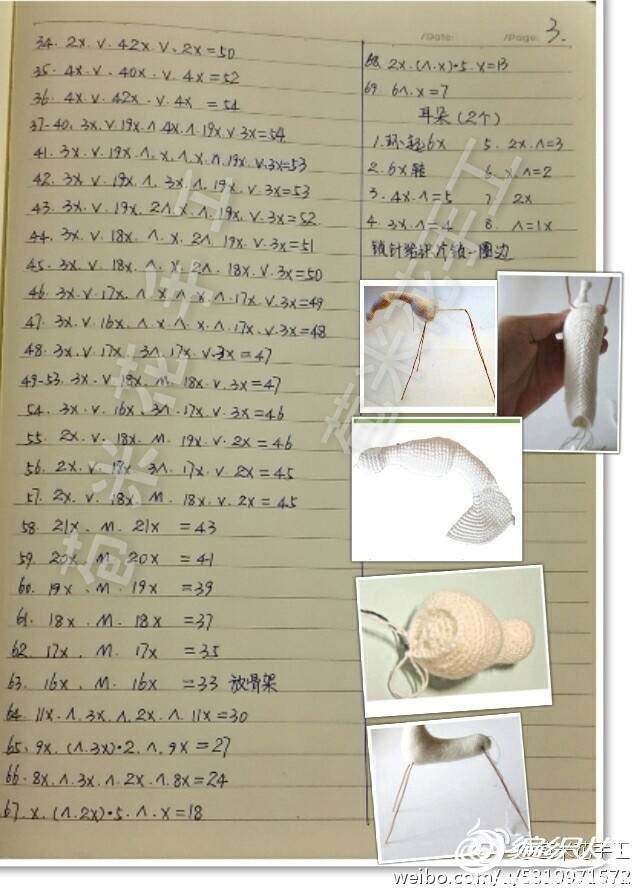 /Date: /Page: 3.
34. 2x. v. 42x. v. 2x = 50
35. 4x. v. 40x. v. 4x = 52
36. 4x. v. 42x. v. 4x = 54
37-40. 3x. v. 19x. ∧. 4x. ∧. 19x. v. 3x = 54
41. 3x. v. 19x. ∧. x. ∧. x. ∧. 19x. v. 3x = 53
42. 3x. v. 19x. ∧. 3x. ∧. 19x. v. 3x = 53
43. 3x. v. 19x. 2∧. x. ∧. 19x. v. 3x = 52
44. 3x. v. 18x. ∧. x. 2∧. 19x. v. 3x = 51
45. 3x. v. 18x. ∧. x. 2∧. 18x. v. 3x = 50
46. 3x. v. 17x. ∧. x. ∧. x. ∧. 17x. v. 3x = 49
47. 3x. v. 16x. ∧. x. ∧. x. ∧. 17x. v. 3x = 48
48. 3x. v. 17x. 3∧. 17x. v. 3x = 47
49-53. 3x. v. 18x. M. 18x. v. 3x = 47
54. 3x. v. 16x. 3∧. 17x. v. 3x = 46
55. 2x. v. 18x. M. 19x. v. 2x = 46
56. 2x. v. 17x. 3∧. 17x. v. 2x = 45
57. 2x. v. 18x. M. 18x. v. 2x = 45
58. 21x. M. 21x = 43
59. 20x. M. 20x = 41
60. 19x. M. 19x = 39
61. 18x. M. 18x = 37
62. 17x. M. 17x = 35
63. 16x. M. 16x = 33 放骨架
64. 11x. ∧. 3x. ∧. 2x. ∧. 11x = 30
65. 9x. (∧. 3x)•2. ∧. 9x = 27
66. 8x. ∧. 3x. ∧. 2x. ∧. 8x = 24
67. x. (∧. 2x)•5. ∧. x = 18
68. 2x. (∧. x)•5. x = 13
69. 6∧. x = 7
耳朵 (2个)
1. 环起6x 5. 2x. ∧ = 3
2. 6x 6. x. ∧ = 2
3. 4x. ∧ = 5 7. 2x
4. 3x. ∧ = 4 8. ∧ = 1x
钩一圈边
花米花手工
weibo.com/u/5310971572